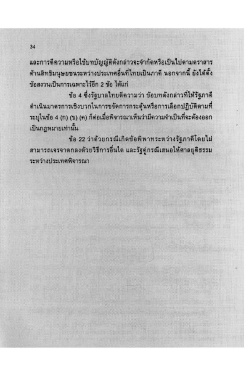 34
และการตีความหรือใช้บทบัญญัติดังกล่าวจะจำกัดหรือเป็นไปตามตราสาร
ด้านสิทธิมนุษยชนระหว่างประเทศอื่นที่ไทยเป็นภาคี นอกจากนี้ ยังได้ตั้ง
ข้อสงวนเป็นการเฉพาะไว้อีก 2 ข้อ ได้แก่
ข้อ 4 ซึ่งรัฐบาลไทยตีความว่า ข้อบทดังกล่าวที่ให้รัฐภาคี
ดำเนินมาตรการเชิงบวกในการขจัดการกระตุ้นหรือการเลือกปฏิบัติตามที่
ระบุในข้อ 4 (ก) (ข) (ค) ก็ต่อเมื่อพิจารณาเห็นว่ามีความจำเป็นที่จะต้องออก
เป็นกฎหมายเท่านั้น
ข้อ 22 ว่าด้วยกรณีเกิดข้อพิพาทระหว่างรัฐภาคีโดยไม่
สามารถเจรจาตกลงด้วยวิธีการอื่นใด และรัฐคู่กรณีเสนอให้ศาลยุติธรรม
ระหว่างประเทศพิจารณา